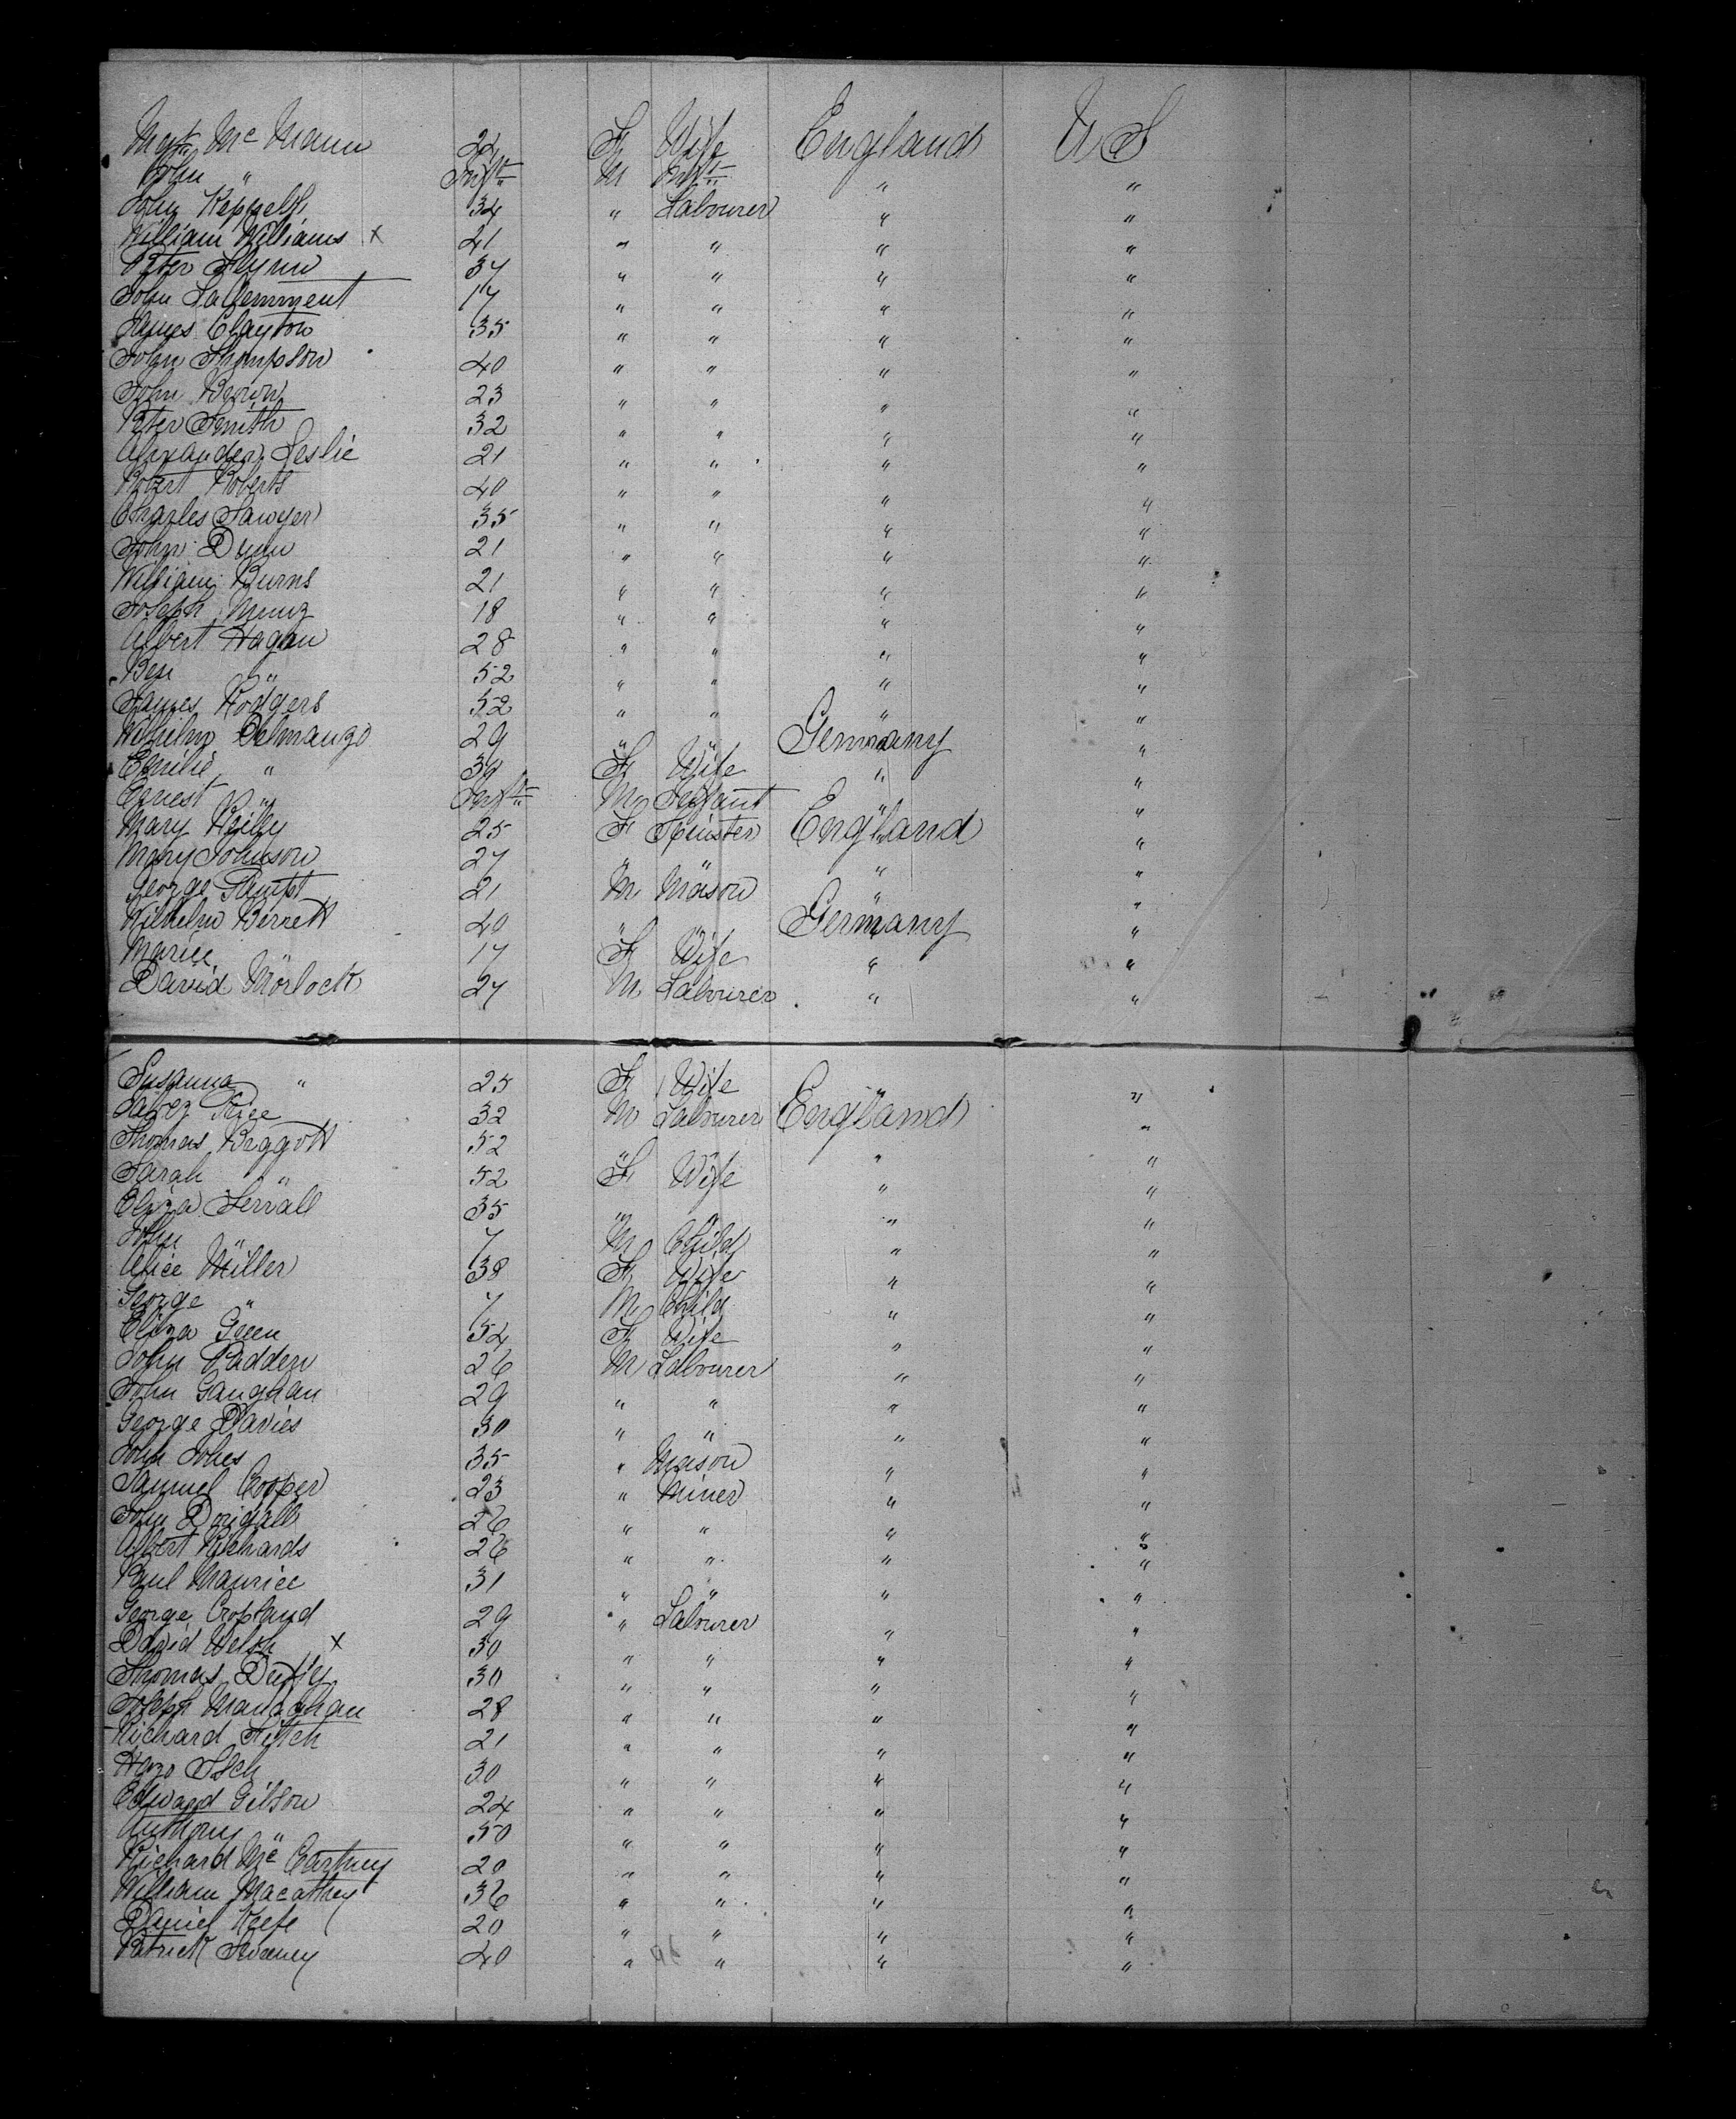 Mgt. Mc Mann 24 F Wife England U S
John " Inft M Inft " "
John Keppel 34 " Labourer " "
William Williams x 21 " " " "
Peter Flynn 37 " " " "
John 17 " " " "
James Clayton 35 " " " "
John Thompson 40 " " " "
John Brown 23 " " " "
Peter Smith 32 " " " "
Alexander Leslie 21 " " " "
Robert Roberts 40 " " " "
Charles Sawyer 35 " " " "
John Dunn 21 " " " "
William Burns 21 " " " "
Joseph Menz 18 " " " "
Albert Hagan 28 " " " "
Ben " 52 " " " "
James Rodgers 52 " " " "
Wilhelm Delmanzo 29 " " Germany "
Emilie " 39 F Wife " "
Ernest " Inft M Infant " "
Mary Reilly 25 F Spinster England "
Mary Johnson 27 " " " "
George 21 M Mason " "
Wilhelm Berrett 40 " " Germany "
Mariee 17 F Wife " "
David Morlock 27 M Labourer " "
Susanna " 25 F Wife " "
Jabez Price 32 M Labourer England "
Thomas Baggott 52 " " " "
Sarah " 52 F Wife " "
Eliza Serrall 35 " " " "
John " 7 M Child " "
Alice Miller 38 F Wife " "
George " 7 M Child " "
Eliza Green 54 F Wife " "
John Padden 26 M Labourer " "
John Gaughan 29 " " " "
George Davies 30 " " " "
John Jones 35 " Mason " "
Samuel Cooper 23 " Miner " "
John 26 " " " "
Albert Richards 26 " " " "
Paul Maurice 31 " " " "
George Cropland 29 " Labourer " "
David Welsh x 30 " " " "
Thomas Duffy 30 " " " "
Joseph Managhan 28 " " " "
Richard Fitch 21 " " " "
30 " " " "
Edward Gibson 24 " " " "
Anthony " 50 " " " "
Richard Mc Cartney 20 " " " "
William Macathey 36 " " " "
Daniel Keefe 20 " " " "
Patrick Sweeney 40 " " " "